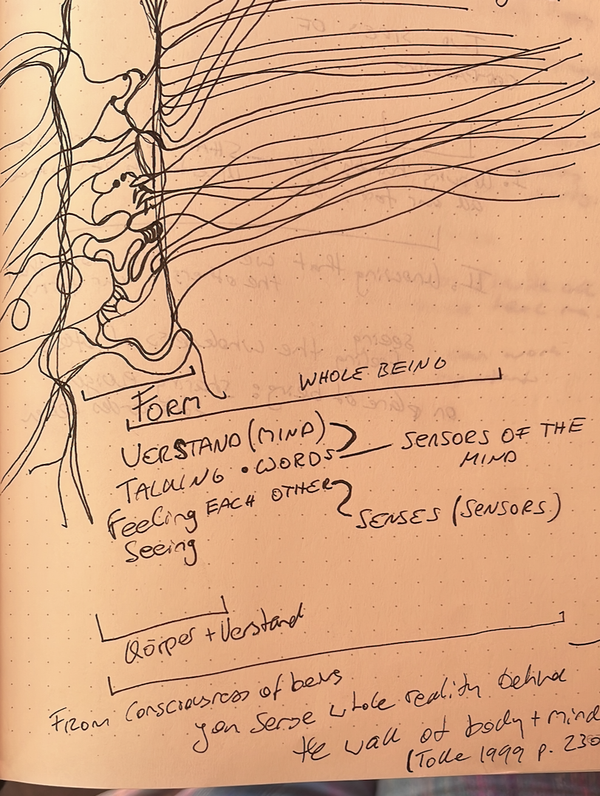 WHOLE BEING
FORM
VERSTAND (MIND)
TALKING • WORDS
SENSORS OF THE
MIND
Feeling EACH OTHER
SENSES (SENSORS)
Seeing
Körper + Verstand
From Consciousness of being
you sense whole reality behind
the wall of body + mind
(Tolle 1999 p. 230